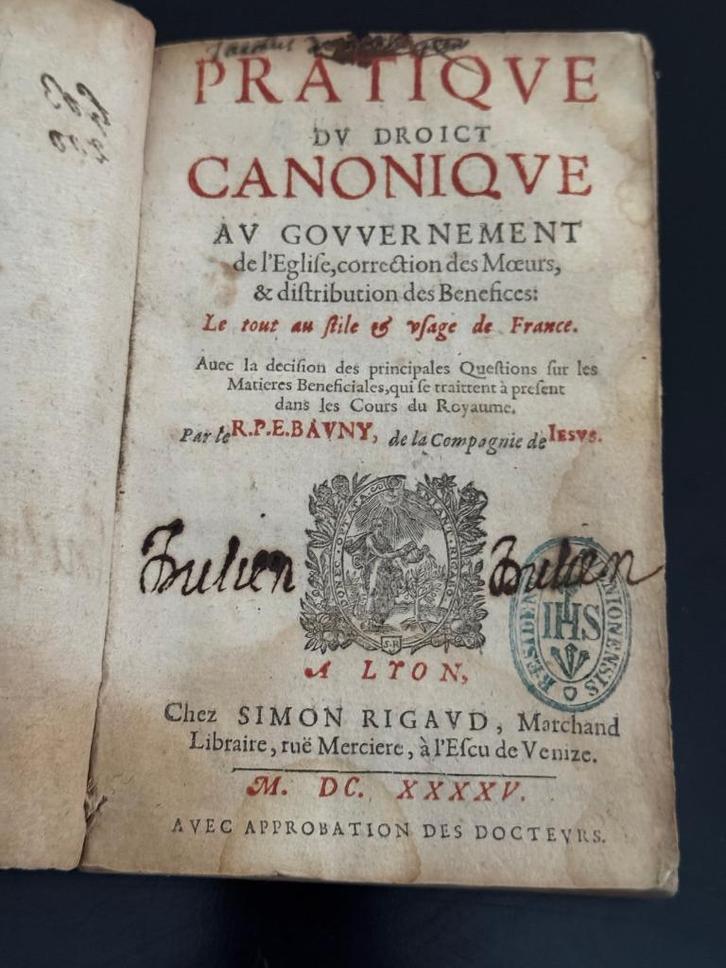 PRATIQVE
DV DROICT
CANONIQVE
AV GOVVERNEMENT
de l'Egliſe, correction des Mœurs,
& diſtribution des Benefices:
Le tout au ſtile & vſage de France.
Auec la deciſion des principales Queſtions ſur les
Matieres Beneficiales, qui ſe traittent à preſent
dans les Cours du Royaume.
Par le R.P.E.BAVNY, de la Compagnie de IESVS.
DONEC · OPTATA · RIGAVD
Julien
Julien
S·R
RESIDEN NIONENSIS
IHS
A LYON,
Chez SIMON RIGAVD, Marchand
Libraire, ruë Merciere, à l'Eſcu de Venize.
M. DC. XXXXV.
AVEC APPROBATION DES DOCTEVRS.